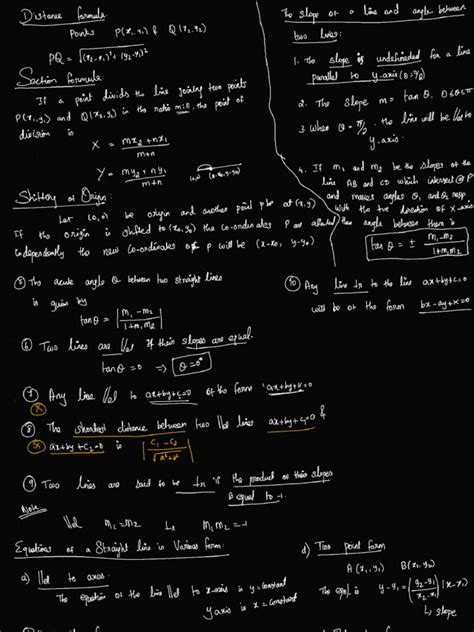 Distance formula
Points P(x₁, y₁) & Q(x₂, y₂)
PQ = √(x₂-x₁)²+(y₂-y₁)²
Section formula
If a point divides the line joining two points
P(x₁, y₁) and Q(x₂, y₂) in the ratio m:n, the point of
division is
X = mx₂ + nx₁ / m+n
Y = my₂ + ny₁ / m+n
Shifting of Origin:
Let (0,0) be origin and another point P be at (x, y)
If the origin is shifted to (x₀, y₀) the co-ordinates P are
independently the new co-ordinates of P will be (x-x₀, y-y₀)
The slope of a line and angle between
two lines:
1. The slope is undefined for a line
parallel to y-axis (θ=π/2)
2. The slope m = tan θ, 0≤θ≤π
3. When θ = π/2, the line will be ∥el to
y-axis.
4. If m₁ and m₂ be the slopes of the
line AB and CD which intersect @ P
and makes angles θ₁ and θ₂ resp.
with the +ve direction of x-axis
the angle between them is
tan θ = ± m₁-m₂ / 1+m₁m₂
⑤ The acute angle θ between two straight lines
is given by
tan θ = |m₁ - m₂ / 1+m₁m₂|
⑥ Two lines are ∥el if their slopes are equal.
tan θ = 0 ⇒ θ = 0°
⑦ Any line ∥el to ax+by+c=0 of the form ax+by+k=0
⑧ The shortest distance between two ∥el lines ax+by+c₁=0 &
ax+by+c₂=0 is |c₁ - c₂ / √a²+b²|
⑨ Two lines are said to be ⊥r is the product of their slopes
is equal to -1.
Note
∥el m₁=m₂ ⊥r m₁m₂=-1
⑩ Any line ⊥r to the line ax+by+c=0
will be of the form bx-ay+k=0
Equations of a Straight line in Various form:
a) ∥el to axes:
The equation of the line ∥el to x-axis is y = constant
y axis is x = constant
d) Two point form
A(x₁, y₁) B(x₂, y₂)
The eqn is y-y₁ = (y₂-y₁ / x₂-x₁)(x-x₁)
↳ slope